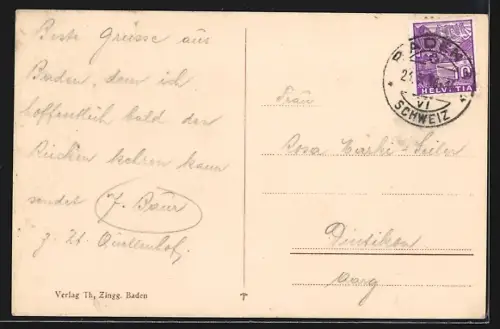 Beste Grüsse aus
Baden, dem ich
hoffentlich bald den
Rücken kehren kann
sendet J. Baur
z. Zt. Quellenhof,
Verlag Th. Zingg. Baden
BADEN
21.
VI
SCHWEIZ
10
HELVETIA
Frau
Rosa Märki-Seiler
Dintikon
Aarg